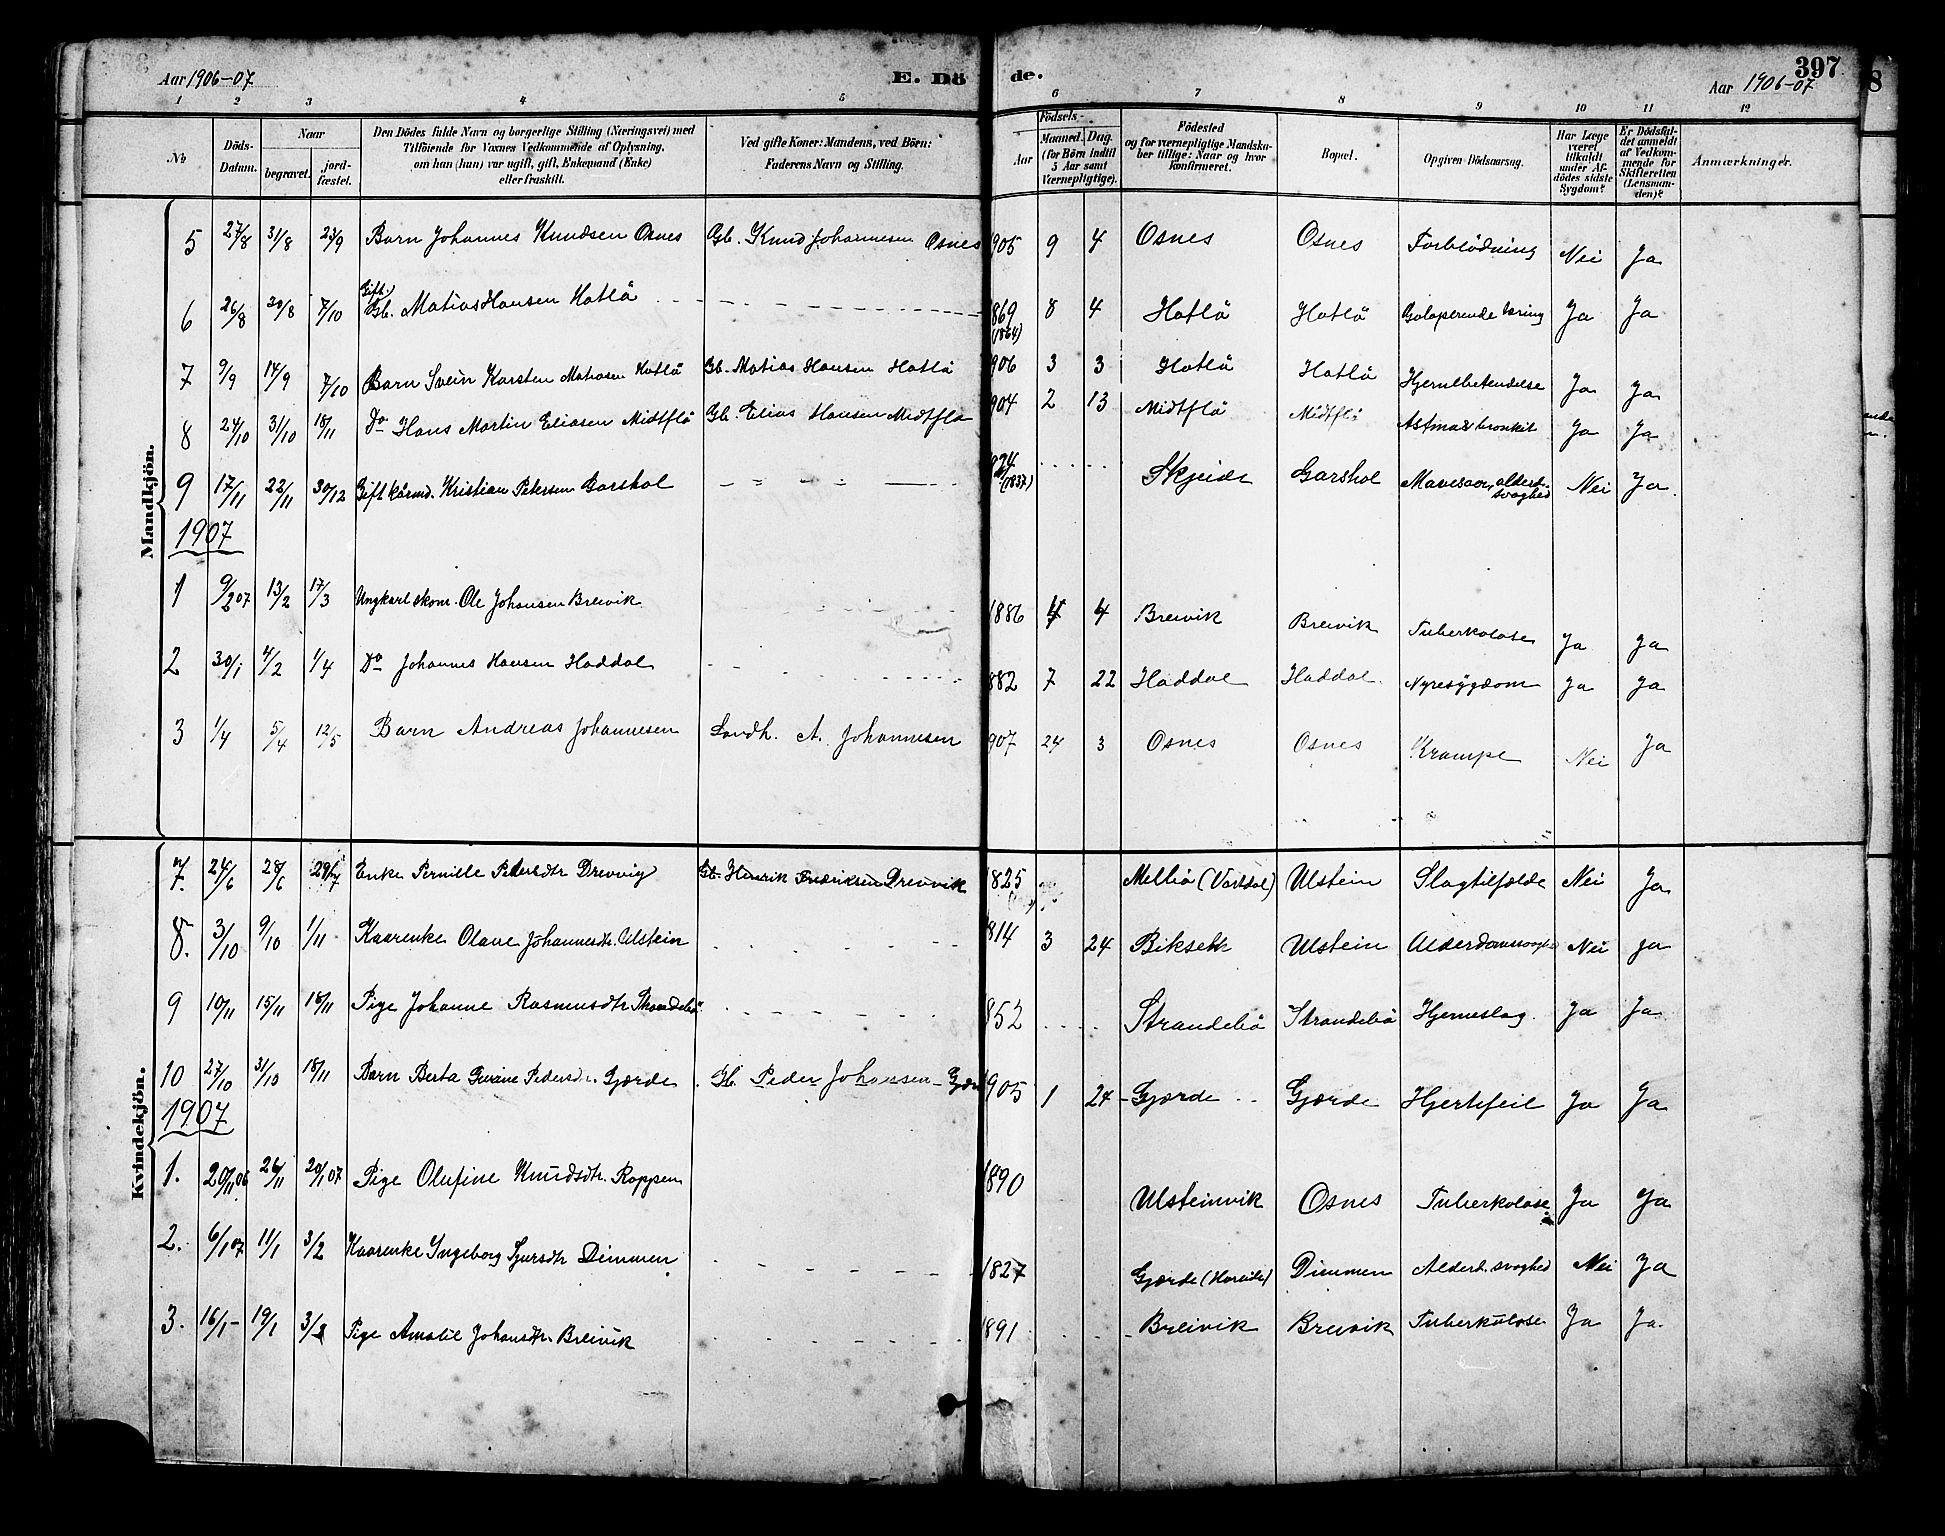 Aar 1906-07 E. Dö de. Aar 1906-07 397
1 2 3 4 5 6 7 8 9 10 11 12
No
Döds-Datum.
Naar
begravet.
jord-fæstet.
Den Dödes fulde Navn og borgerlige Stilling (Næringsvei) med
Tilföiende for Voxnes Vedkommende af Oplysning,
om han (hun) var ugift, gift, Enkemand (Enke)
eller fraskilt.
Ved gifte Koner: Mandens, ved Börn:
Faderens Navn og Stilling.
Födsels-
Aar
Maaned. Dag.
(for Börn indtil
5 Aar samt
Værnepligtige).
Födested
og for værnepligtige Mandska-
ber tillige: Naar og hvor
konfirmeret.
Bopæl.
Opgiven Dödsaarsag.
Har Læge
været
tilkaldt
under Af-
dödes sidste
Sygdom?
Er Dödsfal-
det anmeldt
af Vedkom-
mende for
Skifteretten
(Lensman-
den)?
Anmærkninger.
Mandkjön.
5 27/8 31/8 23/9 Barn Johannes Knudsen Osnes Gb. Knud Johannesen Osnes 905 9 4 Osnes Osnes Forblödning Nei Ja
Gift.
6 26/8 30/8 7/10 Gb. Matias Hansen Hatlö 869 8 4 Hatlö Hatlö Galoperende tæring Ja Ja
(1864)
7 9/9 14/9 7/10 Barn Svein Karsten Matiasen Hatlö Gb. Matias Hansen Hatlö 906 3 3 Hatlö Hatlö Hjernebetendelse Ja Ja
8 24/10 31/10 18/11 Do Hans Martin Eliasen Midtflö Gb. Elias Hansen Midtflö 904 2 13 Midtflö Midtflö Astma & bronkit Ja Ja
9 17/11 22/11 30/12 Gift kårmd. Kristian Petersen Garshol (1837) Skjeide Garshol Mavesaar, alderd. svaghed Nei Ja.
1907
1 9/2 07 13/2 17/3 Ungkarl skom. Ole Johansen Breivik 1886 4 4 Breivik Breivik Tuberkolose Ja Ja
2 30/1 4/2 1/4 Do Johannes Hansen Haddal 882 7 22 Haddal Haddal. Nyresygdom Ja Ja
3 1/4 5/4 12/5 Barn Andreas Johannesen Landh. A. Johannesen 907 24 3 Osnes Osnes Krampe Nei Ja
Kvindekjön.
7. 24/6 28/6 29/7 Enke Pernille Petersdtr Dreivvig Gb. Henrik Fredriksen Dreivvik 1825 (Vartdal) Ulstein Slagtilfælde Nei Ja
8. 3/10 9/10 1/11 Kaarenke Olave Johannesdtr. Ulstein 814 3 24 Ulstein Alderdomssvaghed Nei Ja
9 10/11 15/11 18/11 Pige Johanne Rasmusdtr Strandebö 852 Strandebö Strandebö Hjerneslag. Ja Ja
10 27/10 31/10 18/11 Barn Berta Pedersdr. Gjærde Gb. Peder Johansen Gjær 905 1 24 Gjærde Gjærde Hjertefeil Ja Ja
1907
1. 20/11 06 26/11 20/1 07 Pige Olufine Knudsdtr. Roppen 1890 Ulsteinvik Osnes Tuberkolose Ja Ja
2. 6/1 07 11/1 3/2 Kaarenke Ingeborg Sjursdtr Dimmen 1827 Gjærde (Hareide) Dimmen Alderd. svaghed Nei Ja
3. 16/1 19/1 3/3 Pige Amalie Johansdtr. Breivik 1891 Breivik Breivik Tuberkulose Ja Ja.